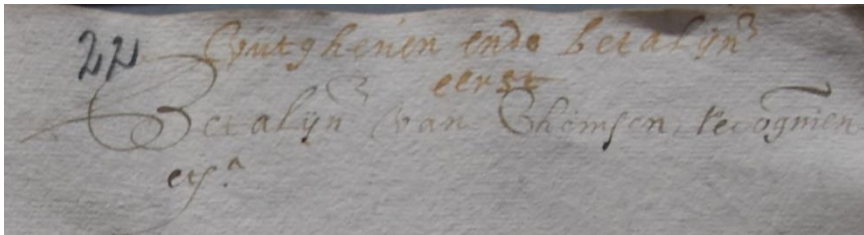 22
Vuutgheven ende betalijn
eerst
Betalijn van Cheinsen, recognien
etc.